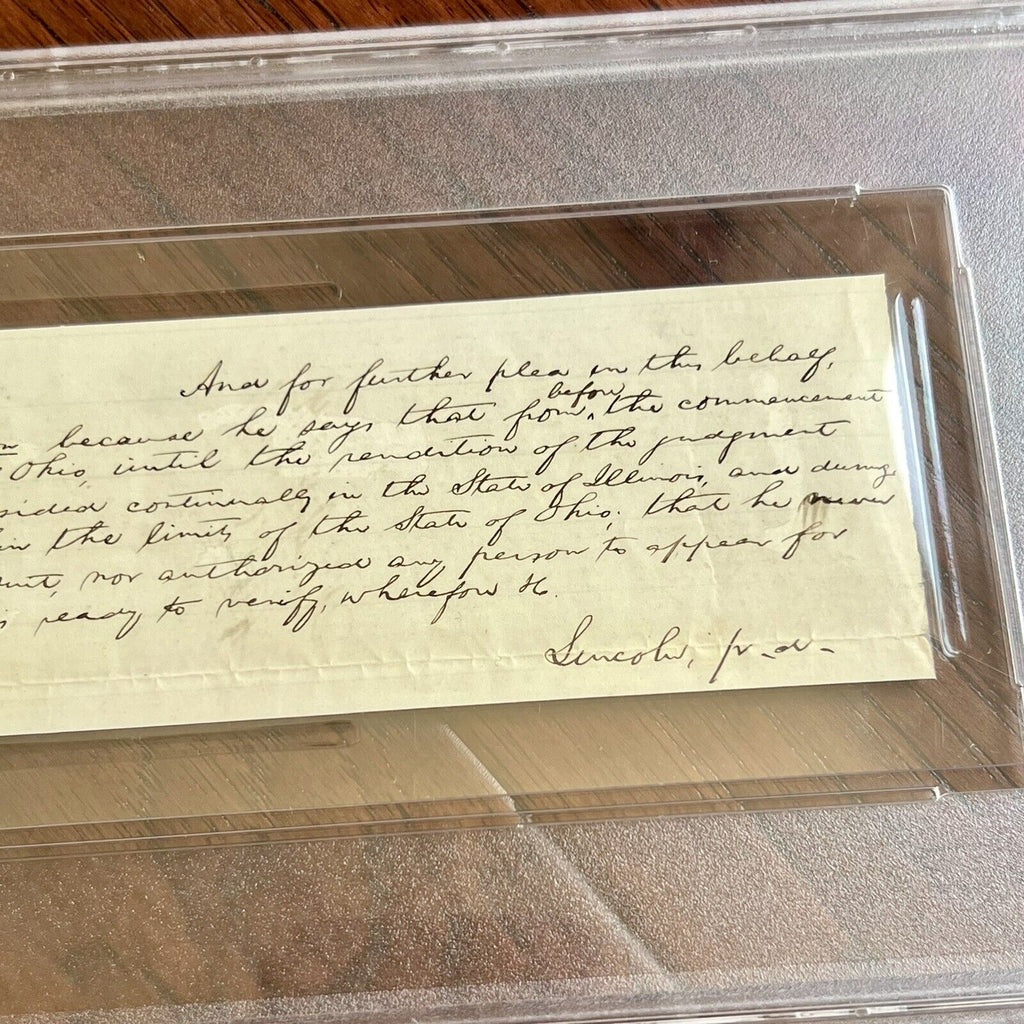 And for further plea in this behalf,
before
because he says that from ‸ the commencement
Ohio, until the rendition of the judgment
sided continually in the State of Illinois, and during
in the limits of the State of Ohio; that he never
nor authorized any person to appear for
ready to verify, wherefore &c.
Lincoln, p. d.